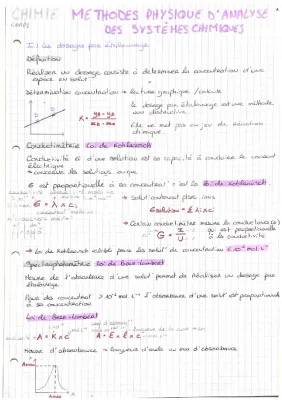 CHIMIE METHODES PHYSIQUE D'ANALYSE
DES SYSTÈMES CHIMIQUES
I.) Les dosages par étalonnage
Définition
Réaliser un dosage consiste à déterminer la concentration d'une
espèce en solut°
Détermination concentration → lecture graphique / calcule
le dosage par étalonnage est une méthode
non destructive
K = yB - yA
xB - xA
Elle ne met pas en jeu de réaction
chimique.
Conductimétrie Loi de Kohlrausch
Conductivité σ d'une solution est sa capacité à conduire le courant
électrique
→ concerne les solutions ionique
σ est proportionnelle à sa concentrat° : c'est la loi de Kohlrausch.
→ Solut° contenant plsrs ions
σ = λ × c
σsolution = Σ λi × ci
→ Certains conductimètres mesure la conductance (G)
G = I
U
qui est proportionnelle
à la conductivité
→ Loi de Kohlrausch valable pour les solut° de concentration < 10⁻² mol.L⁻¹
Spectrophotométrie Loi de Beer-Lambert
Mesure de l'absorbance d'une solut° permet de réaliser un dosage par
étalonnage.
Pour des concentrat° > 10⁻² mol.L⁻¹ l'absorbance d'une solut° est proportionnelle
à sa concentration
Loi de Beer-Lambert
A = K × c
A = E × l × c
Mesure d'absorbance → longueur d'onde au max d'absorbance
A
Amax
λmax